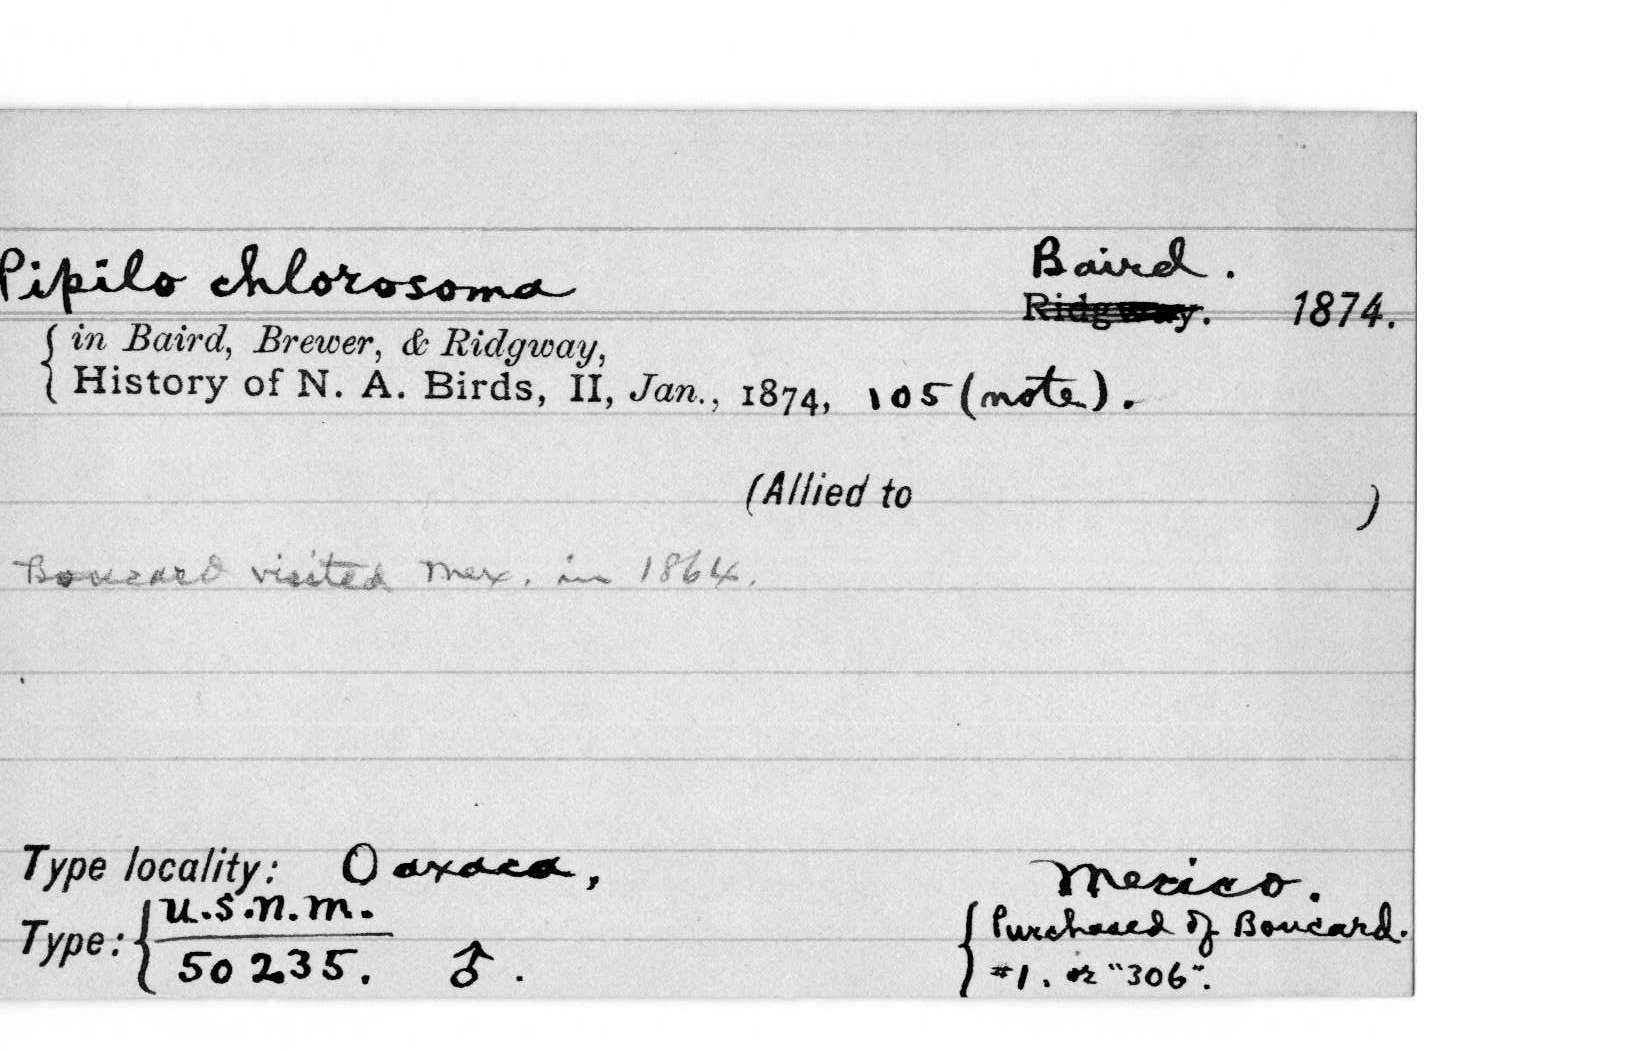 Pipilo chlorosoma
Baird.
Ridgway. 1874.
in Baird, Brewer, & Ridgway,
History of N. A. Birds, II, Jan., 1874, 105 (note).
(Allied to )
Boucard visited Mex. in 1864.
Type locality: Oaxaca, Mexico.
Type: U.S.N.M.
50235. ♂.
Purchased of Boucard.
#1. or "306".